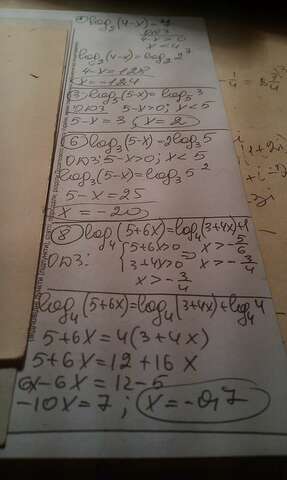 log₂(4-x)=7
ОДЗ
4-x>0
x<4
log₂(4-x)=log₂2⁷
4-x=128
x=-124
③ log₅(5-x)=log₅3
ОДЗ 5-x>0; x<5
5-x=3, x=2
⑥ log₃(5-x)=2log₃5
ОДЗ: 5-x>0; x<5
log₃(5-x)=log₃5²
5-x=25
x=-20
⑧ log₄(5+6x)=log₄(3+4x)+1
ОДЗ: { 5+6x>0 x>-5/6
3+4x>0 => x>-3/4
x>-3/4
log₄(5+6x)=log₄(3+4x)+log₄4
5+6x=4(3+4x)
5+6x=12+16x
6x-6x=12-5
-10x=7; x=-0,7